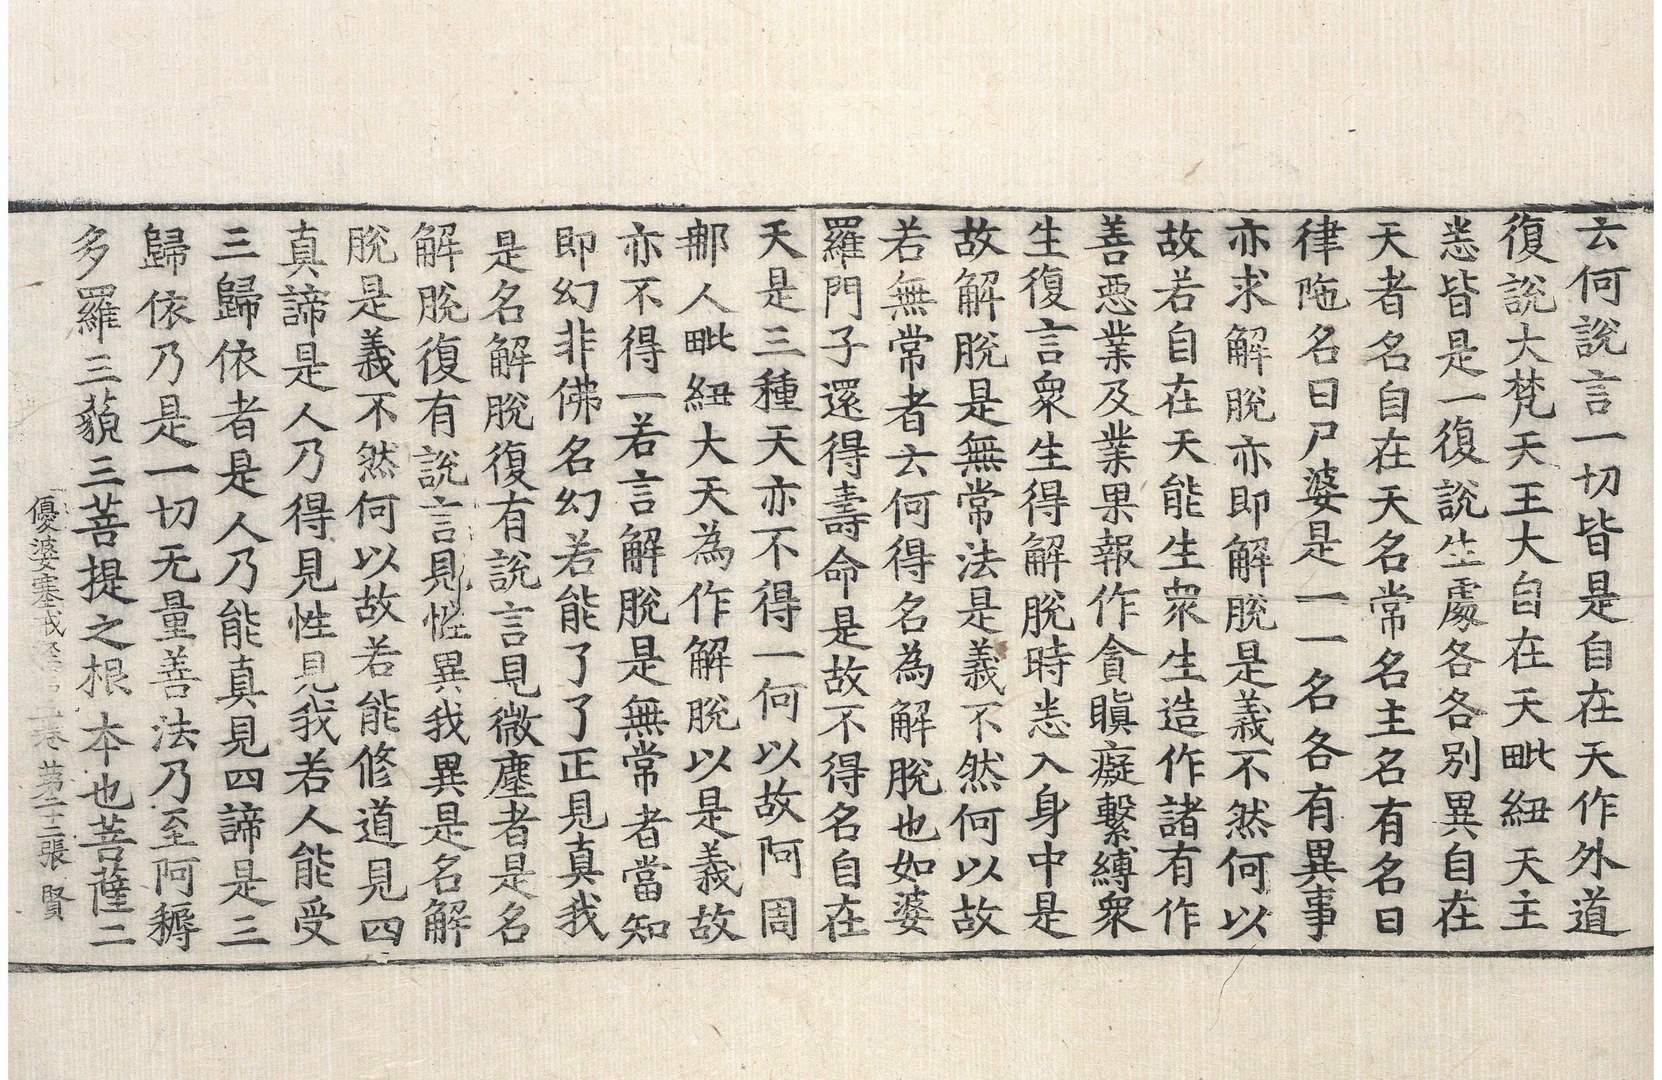 云何說言一切皆是自在天作外道
復說大梵天王大自在天毗紐天主
悉皆是一復說生處各各別異自在
天者名自在天名常名主名有名曰
律陁名曰尸婆是一一名各有異事
亦求解脫亦即解脫是義不然何以
故若自在天能生衆生造作諸有作
善惡業及業果報作貪瞋癡繫縛衆
生復言衆生得解脫時悉入身中是
故解脫是無常法是義不然何以故
若無常者云何得名為解脫也如婆
羅門子還得壽命是故不得名自在
天是三種天亦不得一何以故阿周
那人毗紐大天為作解脫以是義故
亦不得一若言解脫是無常者當知
即幻非佛名幻若能了了正見真我
是名解脫復有說言見微塵者是名
解脫復有說言見性異我異是名解
脫是義不然何以故若能修道見四
真諦是人乃得見性見我若人能受
三歸依者是人乃能真見四諦是三
歸依乃是一切无量善法乃至阿耨
多羅三藐三菩提之根本也菩薩二
優婆塞戒經第五卷 第二十二張 賢